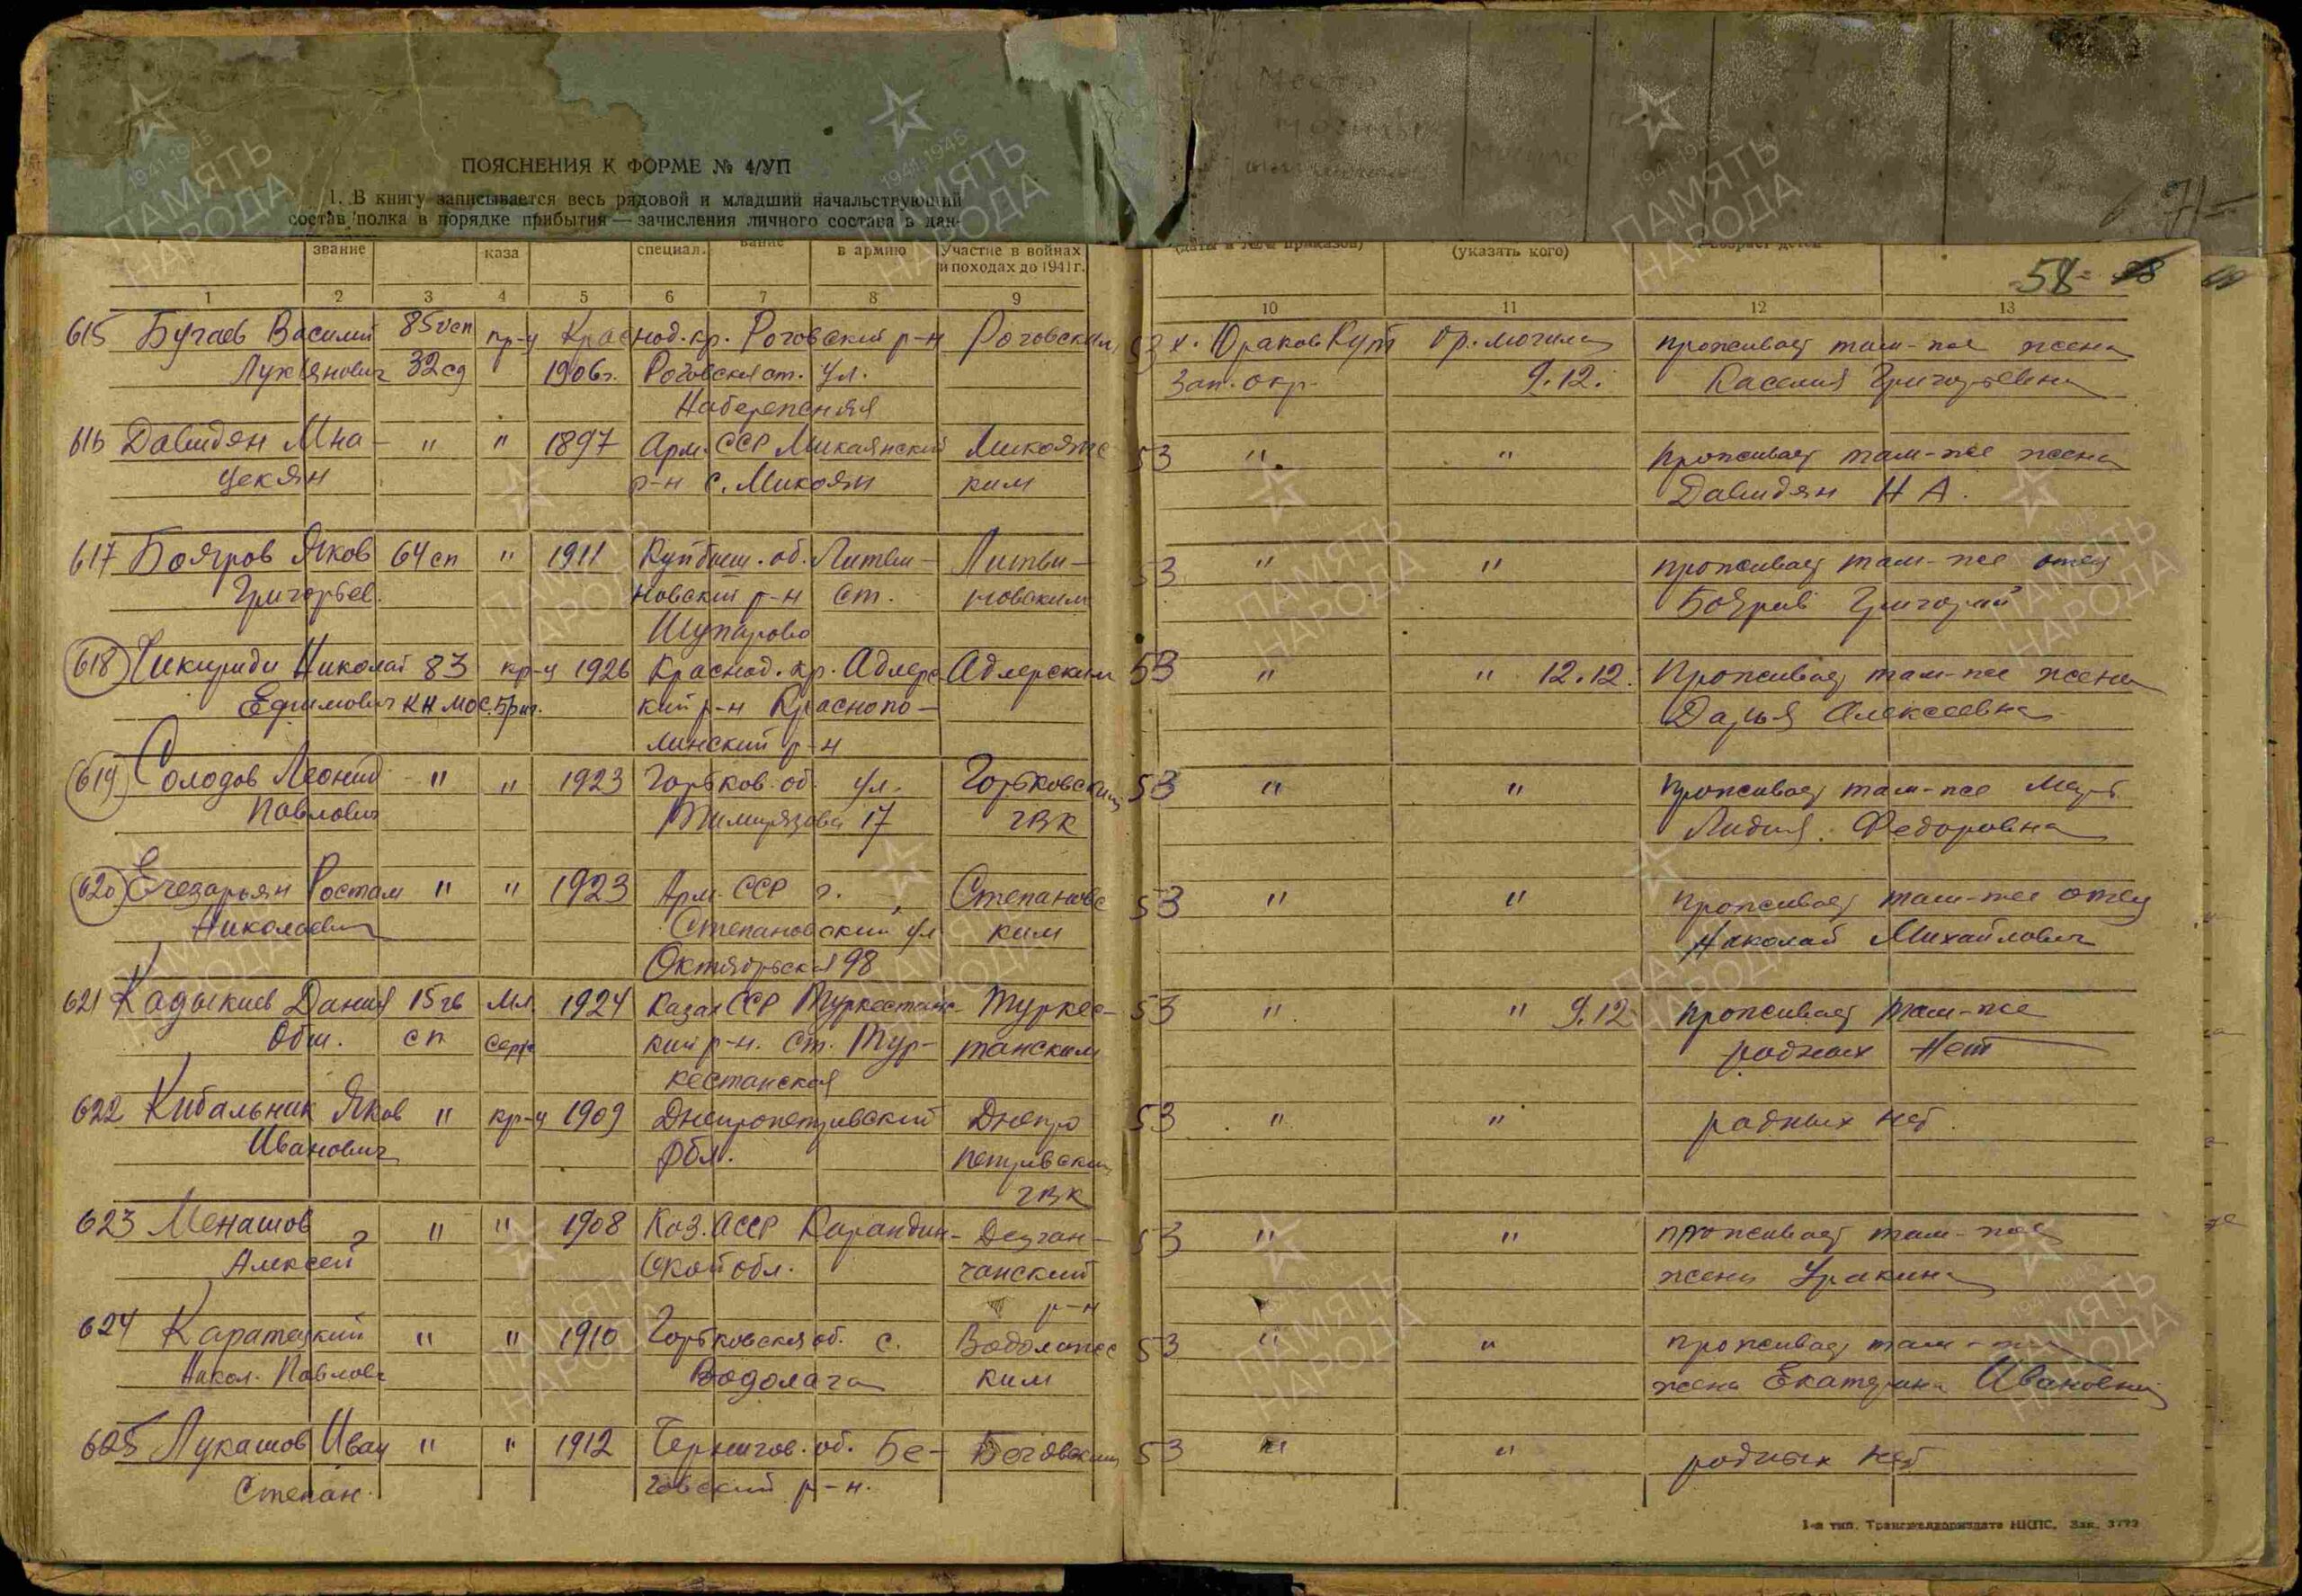 ПОЯСНЕНИЯ К ФОРМЕ № 4/УП
1. В книгу записывается весь рядовой и младший начальствующий
состав полка в порядке прибытия — зачисления личного состава в дан-
звание каза специал. вание в армию Участие в войнах
и походах до 1941 г. (указать кого) возраст детей
58
1 2 3 4 5 6 7 8 9 10 11 12 13
615 Бугаев Василий 85 усп кр-ц Краснод. кр. Роговский р-н Роговским 53 х. Ораков Кут бр. могила проживает там-же жена
Лукьянович 32 сд 1906г. Роговская ст. ул. Зап. окр. 9.12.
Григорьевна
Набережная
616 Давидян Мна- " " 1897 Арм. ССР Микоянский Микоянс 53 " " проживает там-же жена
цекян р-н с. Микоян ким Давидян Н А.
617 Бояров Яков 64 сп " 1911 Куйбыш. об. Литви- Литви- 53 " " проживает там-же отец
Григорьев. новский р-н ст. новским Бояров Григорий
618 Чикириди Николай 83 кр-ц 1926 Краснод. кр. Адлерс- Адлерским 53 " " 12.12. Проживает там-же жена
Ефимович кн мос. Бриг. кий р-н Краснопо- Дарья Алексеевна
линский р-н
619 Солодов Леонид " " 1923 Горьков. об. ул. Горьковским 53 " " проживает там-же мать
Павлович Тимирязова 17 ГВК Лидия Федоровна
620 Егезарьян Ростам " " 1923 Арм. ССР г. Степановс 53 " " проживает там-же отец
Николаевич Степановский ул. ким Николай Михайлович
Октябрьская 98
621 Кадыкиев Данил 15 гв Мл. 1924 Казах ССР Туркестанс- Туркес- 53 " " 9.12 проживает там-же
Обш. сп серж кий р-н. ст. Тур- танским родных нет
кестанская
622 Кибальник Яков " кр-ц 1909 Днепропетровский Днепро 53 " " родных нет.
Иванович обл. петровским
ГВК
623 Менашов " " 1908 Каз. АССР 53 " " проживает там-же
Алексей ской обл. жена
р-н
624 " " 1910 Горьковская об. с. 53 " " проживает там-же
Никол. Павлов. Водолага ким жена Екатерина Ивановна
625 Лукашов Иван " " 1912 Чернигов. об. Бе- Беговским 53 " " родных нет
Степан. говский р-н.
1-я тип. Трансжелдориздата НКПС. Зак. 3772
1941-1945
ПАМЯТЬ
НАРОДА